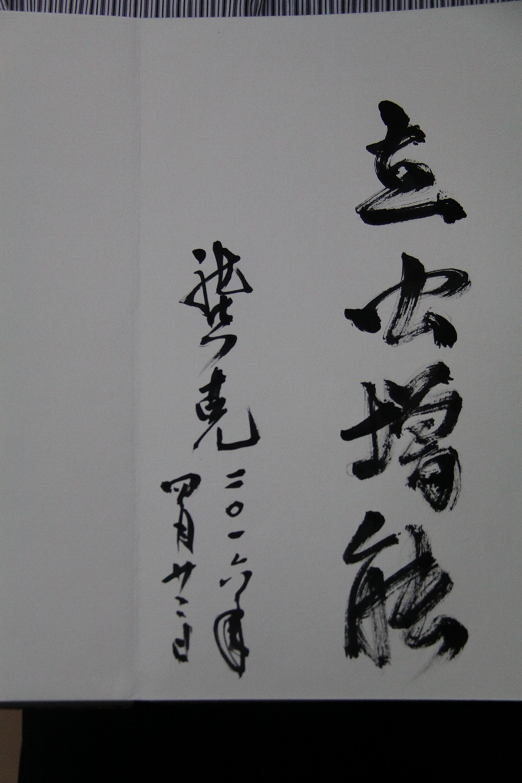 立公增能
龔克
二〇一六年
四月廿二日